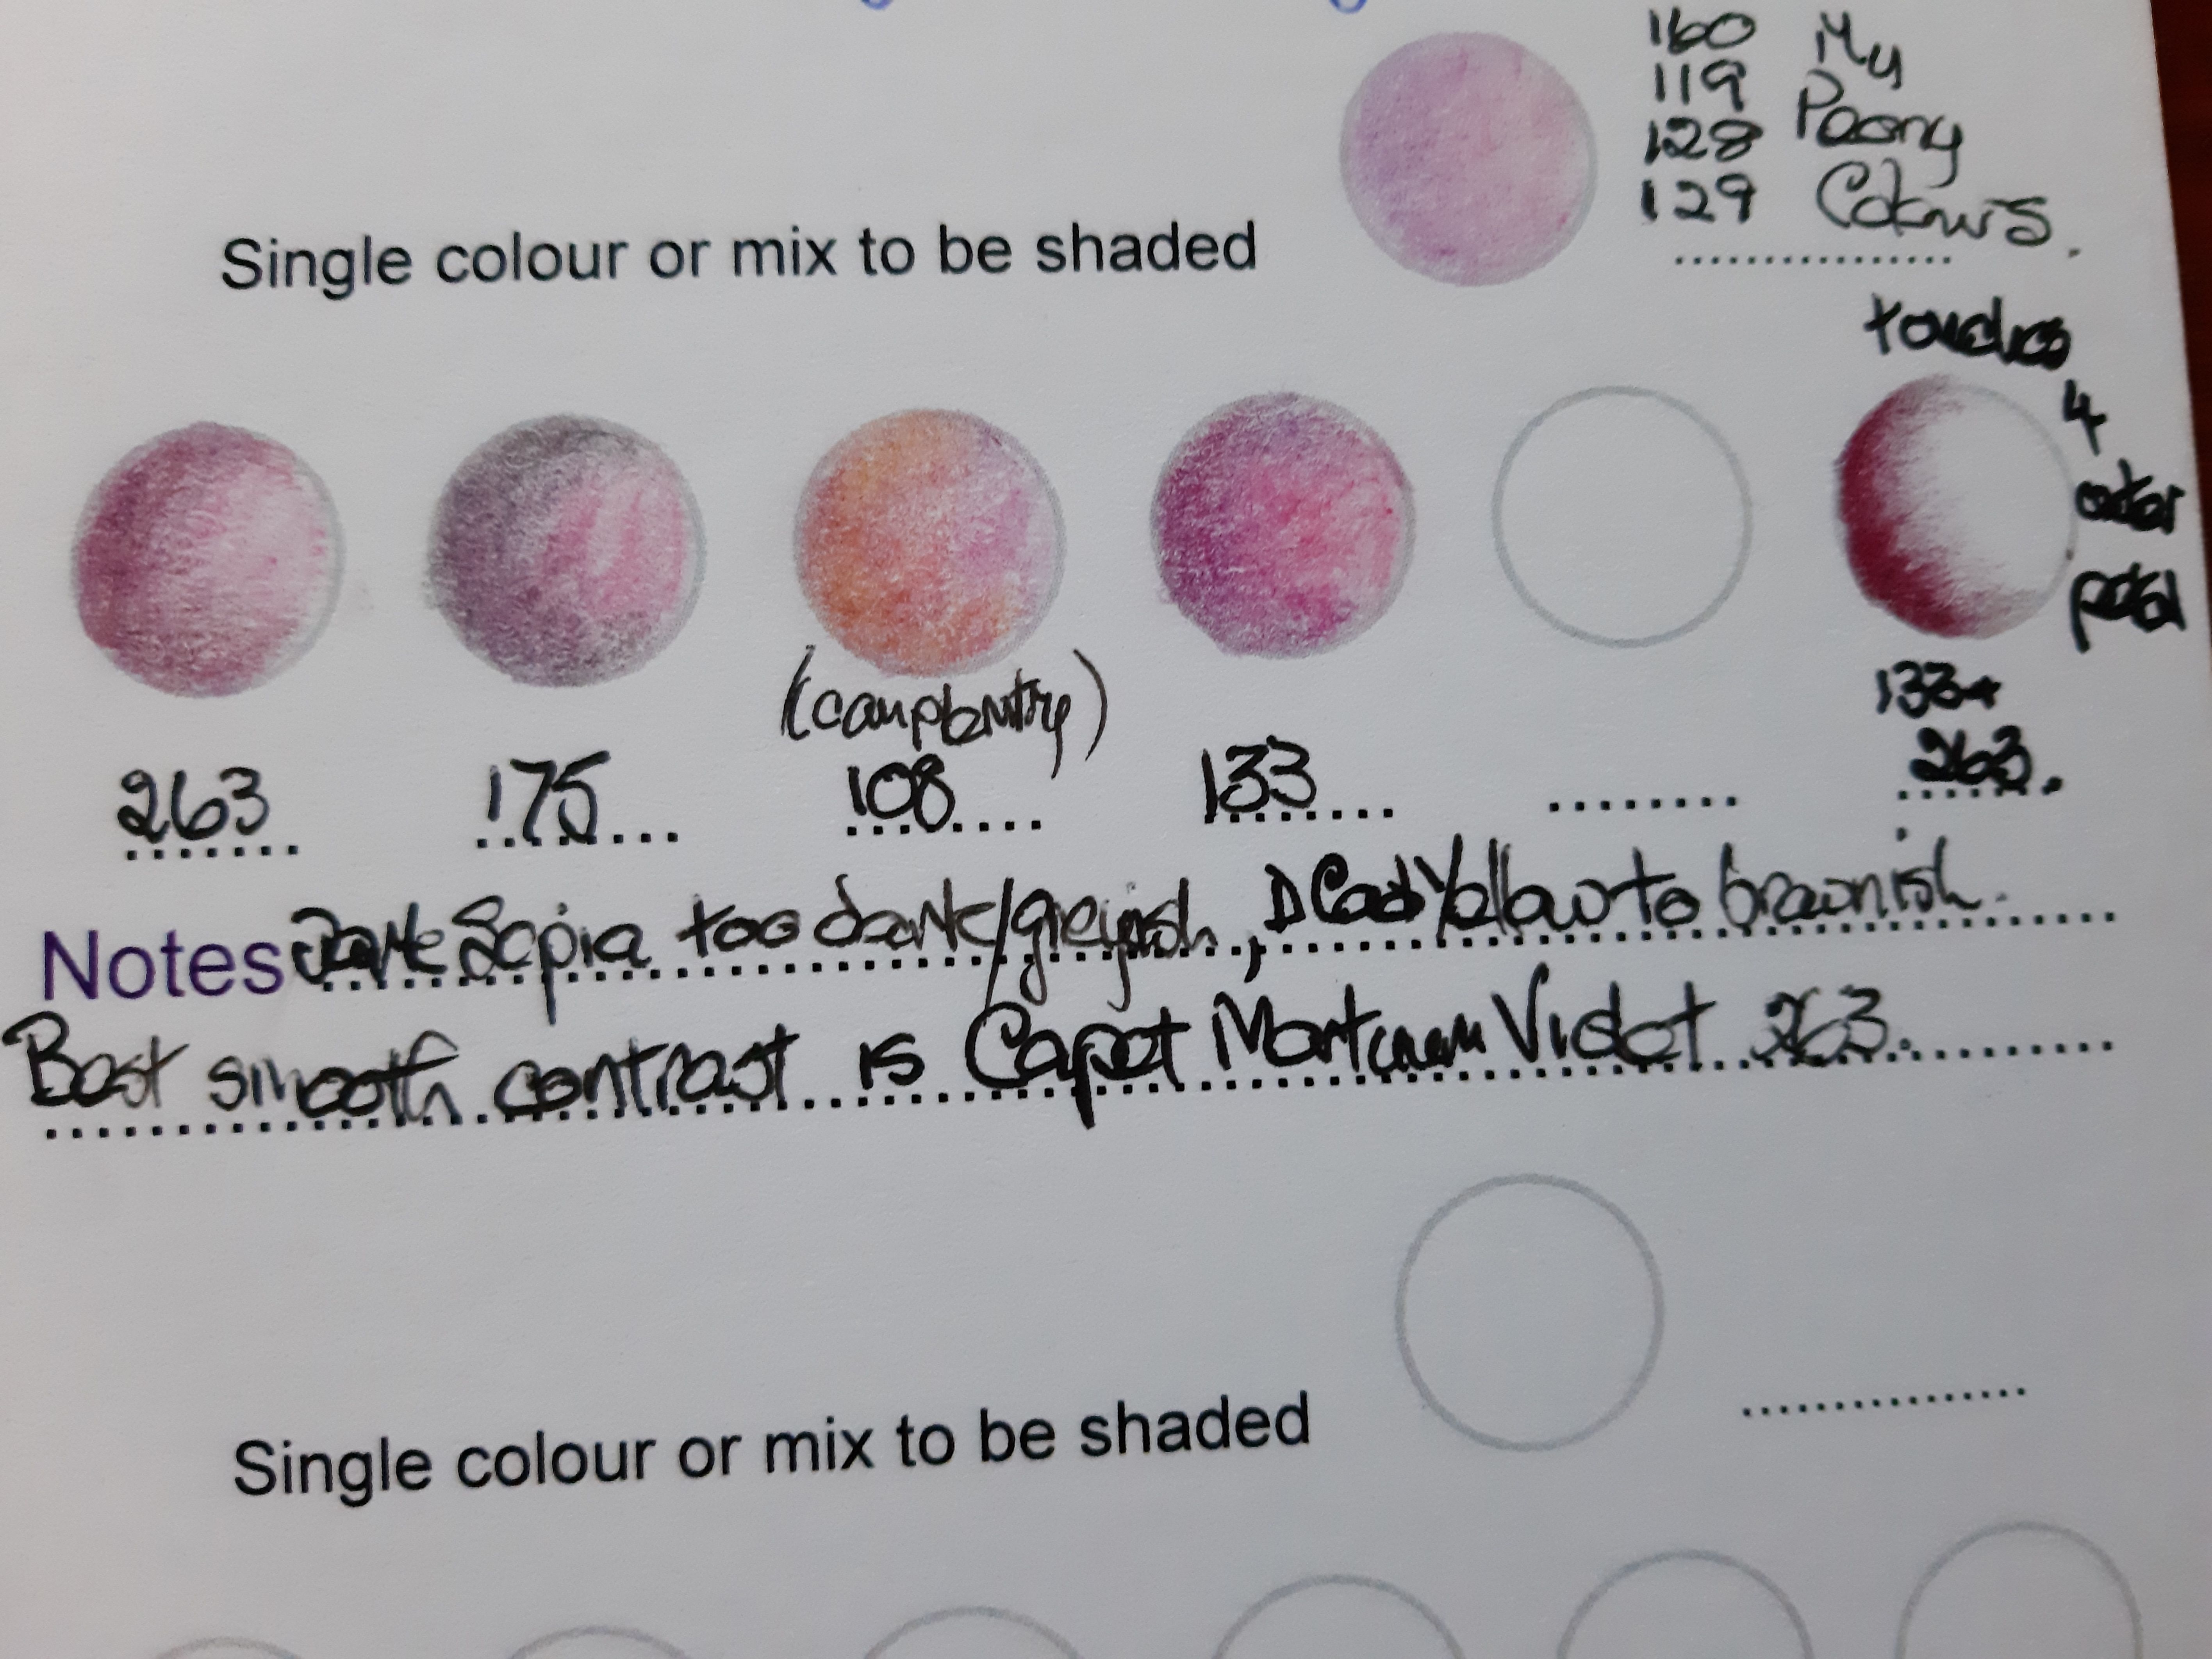 160 My
119 Paony
128 Colours.
129
Single colour or mix to be shaded
touches
4
outer
petal
(complemtry)
133+
263.
263
175
108
133
Notes Dark Sepia too dark/greyish, D Cad Yellow to brownish.
Best smooth contrast is Caput Mortuum Violet 263.
Single colour or mix to be shaded